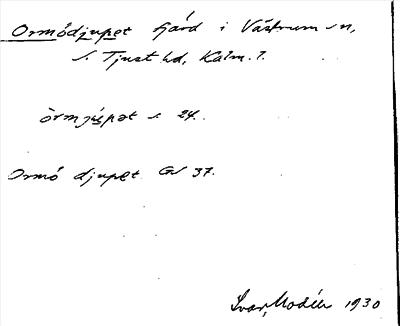 Ormödjupet fjärd i Västrum sn,
S. Tjust hd, Kalm. l.
òrmjúpət s. 24.
Ormö djupet GS 37.
Ivar Modéer 1930